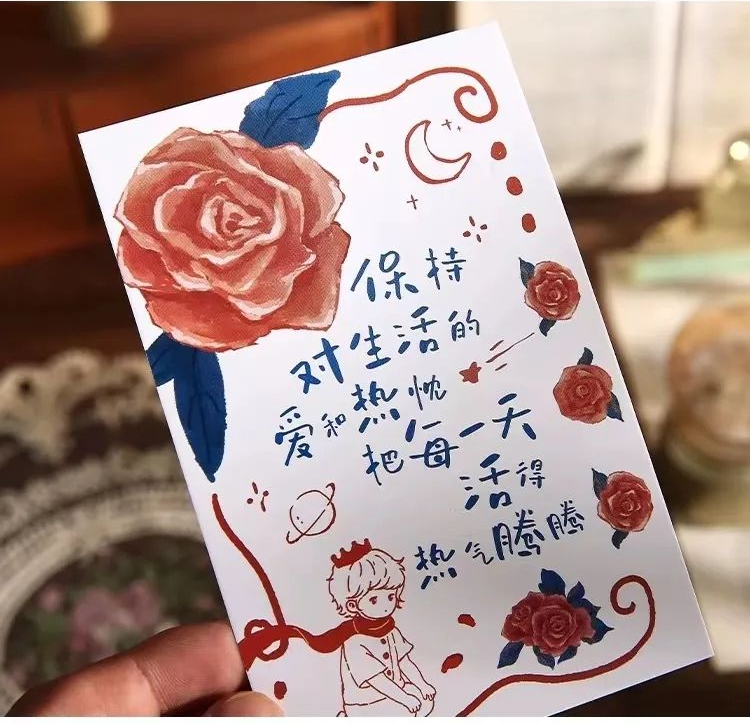 保持
对生活的
爱和热忱
把每一天
活得
热气腾腾